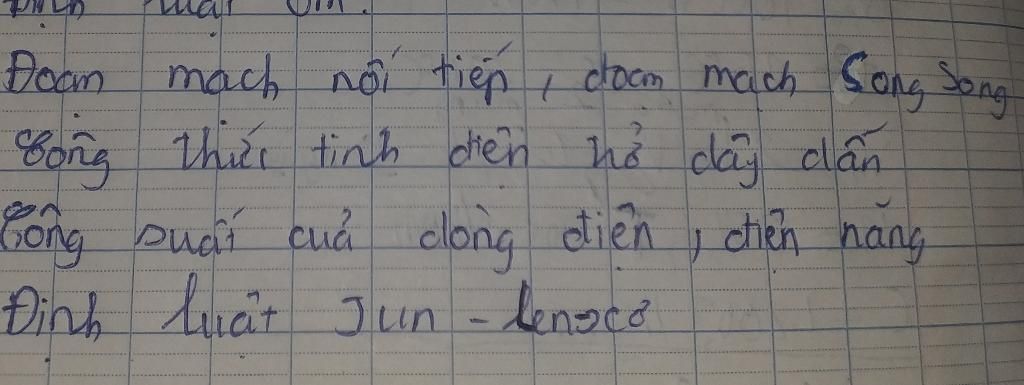 Định luật Ôm.
Đoạn mạch nối tiếp, đoạn mạch Song Song
Công thức tính điện trở dây dẫn
Công suất của dòng điện, điện năng
Định luật Jun - Lenxơ